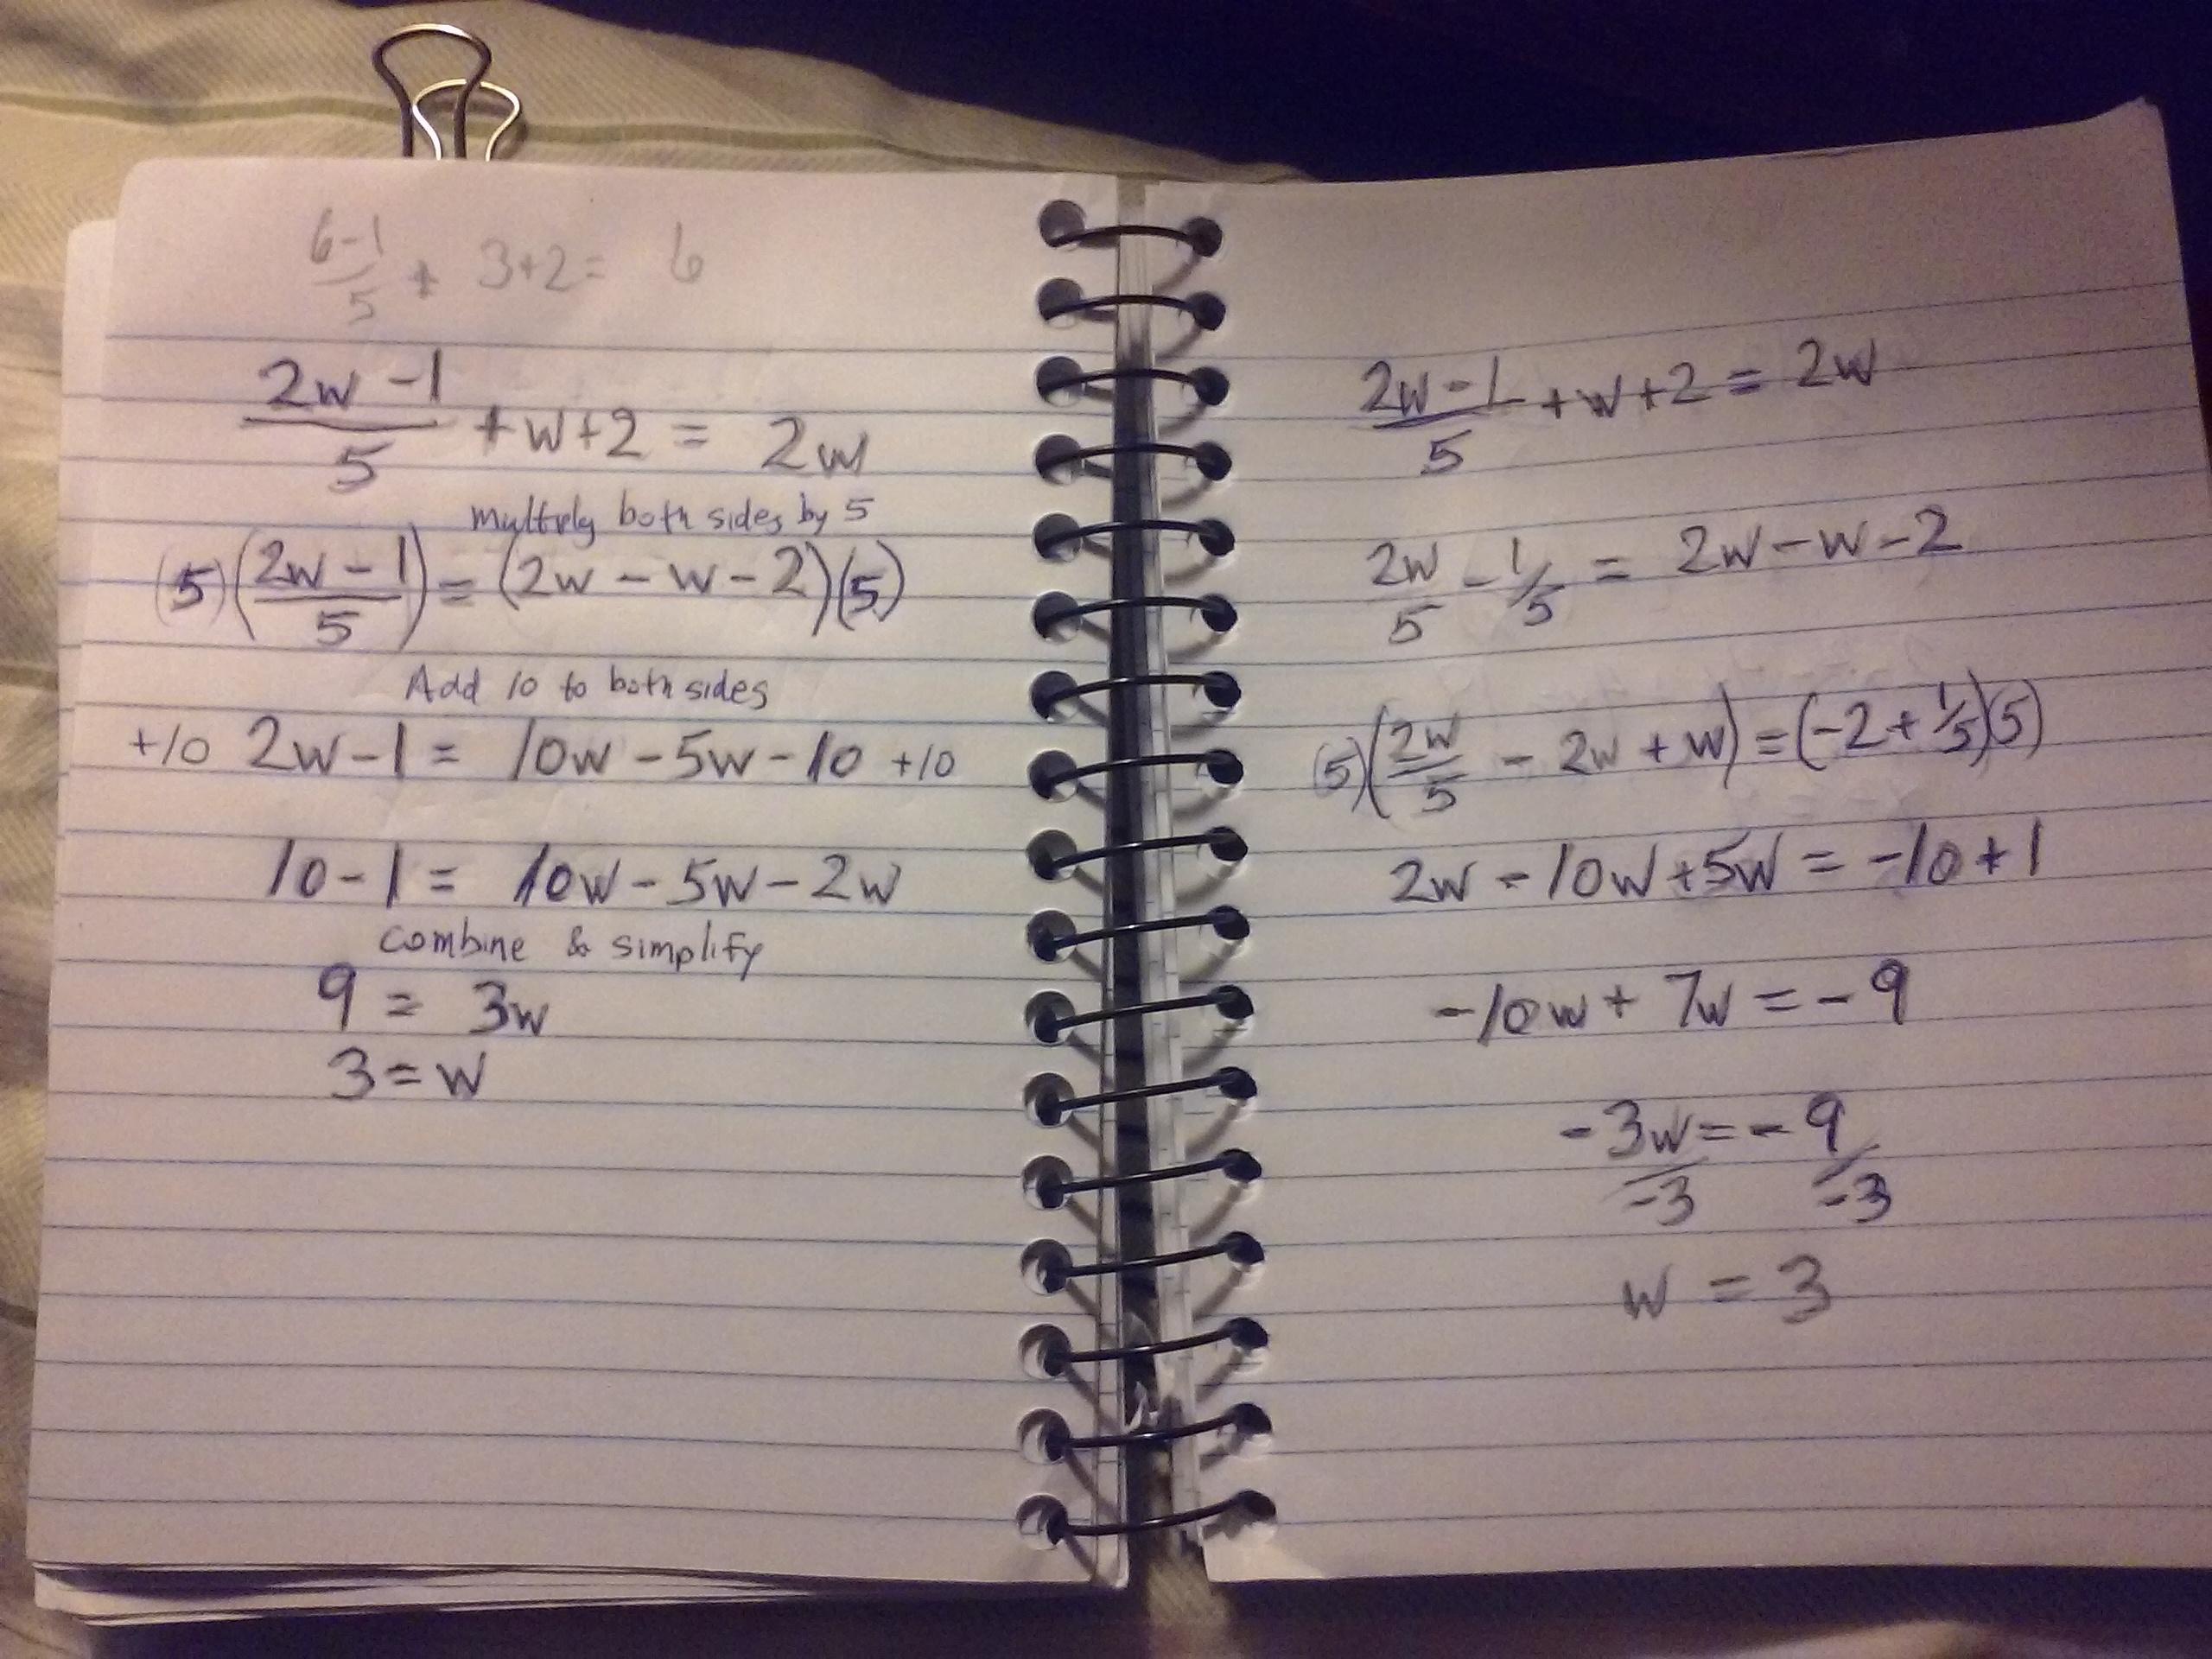 6-1/5 + 3+2 = 6
2w-1/5 + w+2 = 2w
Multiply both sides by 5
(5)(2w-1/5) = (2w-w-2)(5)
Add 10 to both sides
+10 2w-1 = 10w-5w-10 +10
10-1 = 10w-5w-2w
combine & simplify
9 = 3w
3 = w
2w-1/5 + w+2 = 2w
2w/5 - 1/5 = 2w-w-2
(5)(2w/5 - 2w + w) = (-2 + 1/5)(5)
2w - 10w + 5w = -10 + 1
-10w + 7w = -9
-3w/-3 = -9/-3
w = 3